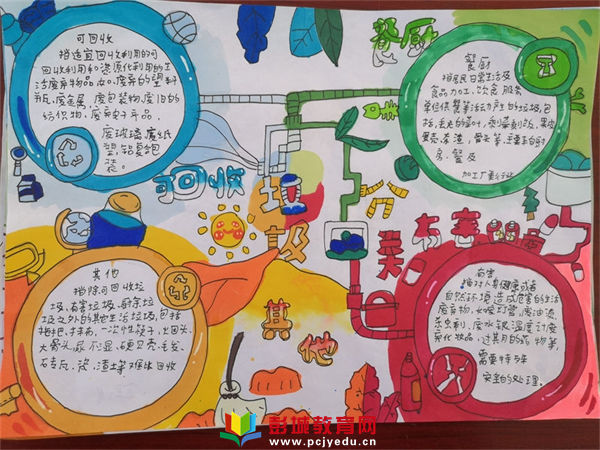 可回收
指适宜回收利用的可
回收利用和资源化利用的生
活废弃物品,如:废弃的塑料
瓶,废金属,废包装物,废旧的
纺织物,废弃电子产品,
废玻璃,废纸
塑铝复合包
装。
餐厨
餐厨
指居民日常生活及
食品加工、饮食服务
单位供餐等活动产生的垃圾,包
括:丢弃的菜叶,剩菜剩饭,果皮
蛋壳,茶渣,骨头等,主要来自厨
房,餐厅及
加工厂
可回收
垃圾
分类
有害
其他
其他
指除可回收垃
圾,有害垃圾,厨余垃
圾之外的其他生活垃圾,包括
拖把,抹布,一次性筷子,火因头,
大骨头,尿不湿,硬贝壳,毛发,
灰土,瓷,渣土等难以回收
有害
指对人身健康或者
自然环境造成危害的生活
废弃物,如灯管,废油漆,
杀虫剂,废水银温度计,废
弃化妆品,过其月的药物等,
需要特殊
安全的处理。
彭城教育网
www.pcjyedu.cn